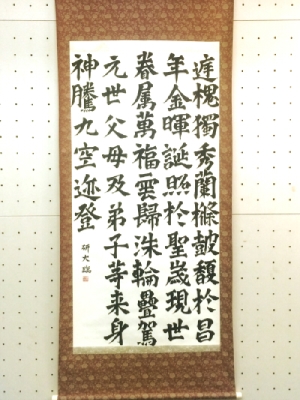 遅槐獨秀蘭檄鼓馥於昌
年金暉誕照於聖歳現世
眷属萬福雲歸洙輪疊駕
元世父母及弟子等来身
神騰九空迹登
研大臨